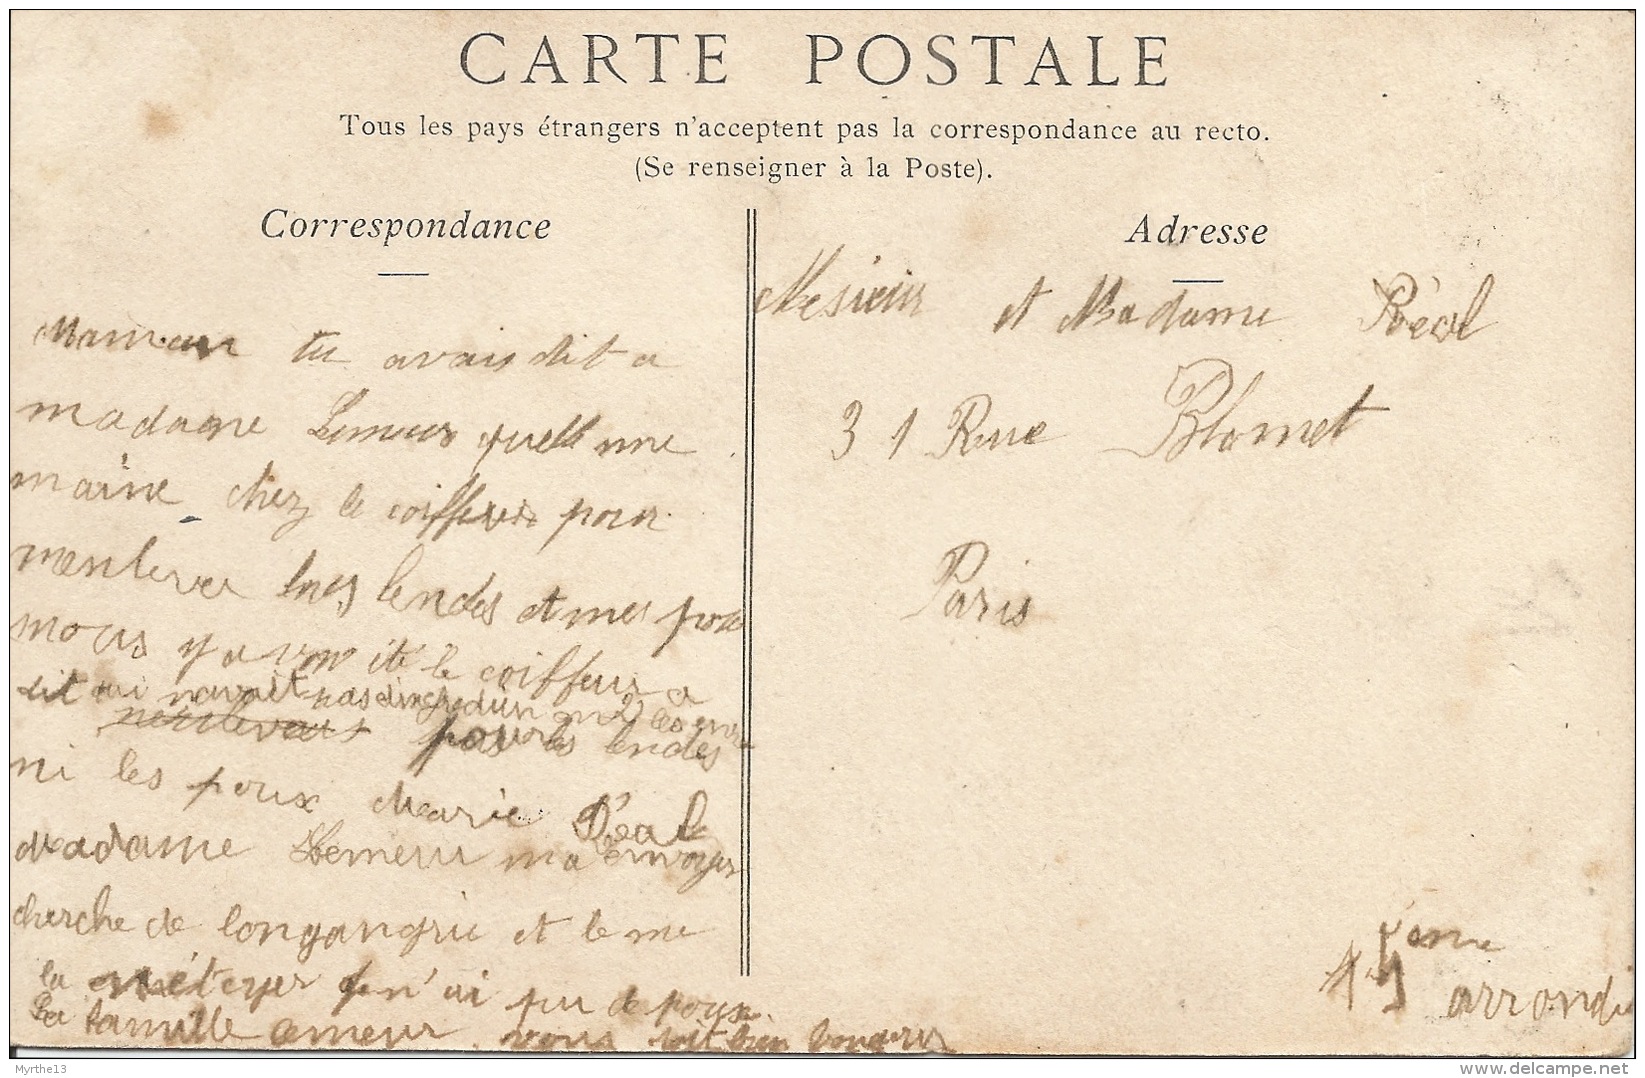 CARTE POSTALE
Tous les pays étrangers n'acceptent pas la correspondance au recto.
(Se renseigner à la Poste).
Correspondance
Maman tu avais dit a
madame Lemeur quelle me
maine chez le coiffeur pour
menlever les lendes et mes poux
nous y avon ité le coiffeur a
dit qui navait pas dingredien
pour les lendes
ni les poux Marie Réal
Madame Lemeur ma envoyer
cherche de longangrie et le me
la métoyer je n'ai pu de poux
La famille Lemeur vous soit bien
Adresse
Mesieur et Madame Réal
31 Rue Blomet
Paris
15 eme
arrondi
Myrthe13
delcampe.net